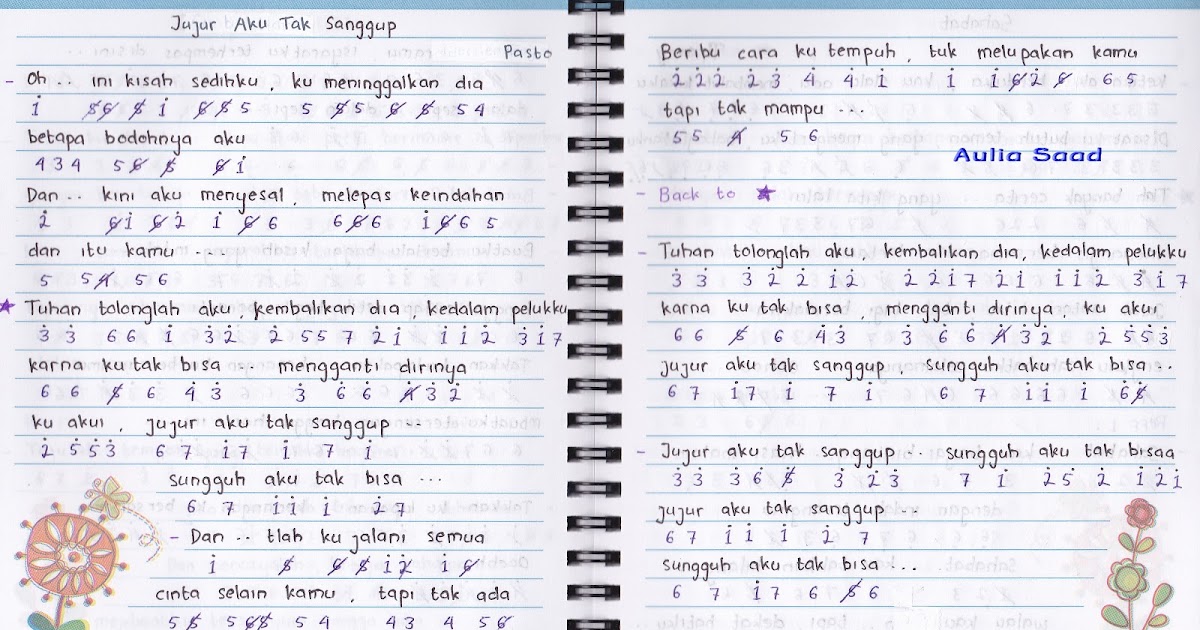 Jujur Aku Tak Sanggup
Pasto
- Oh .. ini kisah sedihku , ku meninggalkan dia
1̇ 5̸6̸ 5̸ 1̇ 6̸ 5̸ 5 5 6̸ 5 6̸ 6̸ 5 4
betapa bodohnya aku
4 3 4 5 6̸ 5̸ 6̸ 1̇
Dan .. kini aku menyesal , melepas keindahan
2̇ 6̸ 1̇ 6̸ 2̇ 1̇ 6̸ 6 6 6̸ 6 1̇ 6̸ 6 5
dan itu kamu ....
5 5 4̸ 5 6
★ Tuhan tolonglah aku , kembalikan dia , kedalam pelukku
3̇ 3̇ 6 6 1̇ 3̇ 2̇ 2̇ 5 5 7 2̇ 1̇ 1̇ 1̇ 2̇ 3̇ 1̇ 7
karna ku tak bisa ... mengganti dirinya
6 6 5̸ 6 4̇ 3̇ 3̇ 6̇ 6̇ 4̸̇ 3̇ 2̇
ku akui , jujur aku tak sanggup ...
2̇ 5̇ 5̇ 3̇ 6 7 1̇ 7 1̇ 7 1̇
sungguh aku tak bisa ...
6 7 1̇ 1̇ 1̇ 2̇ 7
- Dan .. tlah ku jalani semua
1̇ 5̸ 6̸ 5̸ 1̇ 2̸̇ 1̇ 6̸
cinta selain kamu , tapi tak ada
5 6̸ 5 6̸ 6̸ 5 4 4 3 4 5 6̸
Beribu cara ku tempuh , tuk melupakan kamu
2̇ 2̇ 2̇ 2̇ 3̇ 4̇ 4̇ 1̇ 1̇ 1̇ 6̸ 2̇ 6̸ 6 5
tapi tak mampu ...
5 5 4̸ 5 6
Aulia Saad
- Back to ★
- Tuhan tolonglah aku , kembalikan dia, kedalam pelukku
3̇ 3̇ 3̇ 2̇ 2̇ 1̇ 2̇ 2̇ 2̇ 1̇ 7 2̇ 1̇ 1̇ 1̇ 2̇ 3̇ 1̇ 7
karna ku tak bisa , mengganti dirinya ku akui
6 6 5̸ 6 4̇ 3̇ 3̇ 6̇ 6̇ 4̸̇ 3̇ 2̇ 2̇ 5̇ 5̇ 3̇
jujur aku tak sanggup , sungguh aku tak bisa ..
6 7 1̇ 7 1̇ 7 1̇ 6 7 1̇ 1̇ 1̇ 6 5̸
- Jujur aku tak sanggup .. sungguh aku tak bisaa
3̇ 3̇ 3̇ 6̇ 5̸̇ 3̇ 2̇ 3̇ 7 1̇ 2̇ 5̇ 2̇ 1̇ 2̇ 1̇
jujur aku tak sanggup ...
6 7 1̇ 1̇ 1̇ 2̇ 7
sungguh aku tak bisa ...
6 7 1̇ 7 6 5̸ 6